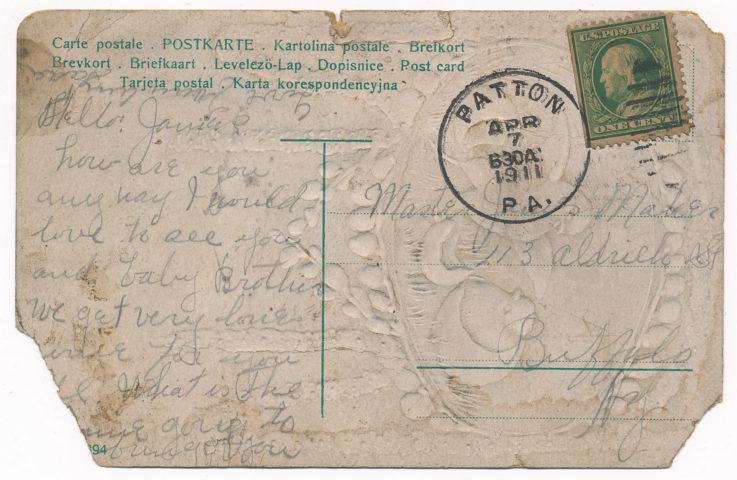 Carte postale . POSTKARTE . Kartolina postale . Brefkort
Brevkort . Briefkaart . Levelezö-Lap . Dopisnice . Post card
Tarjeta postal . Karta korespondencyjna
U.S. POSTAGE
ONE CENT
PATTON
APR
7
630A
1911
PA.
Hello
how are you
any way I would
love to see you
and baby Brother
We get very lone
some for you
all What is the
going to
bring you
Master
113 aldrich St
Buffalo
Ny
94